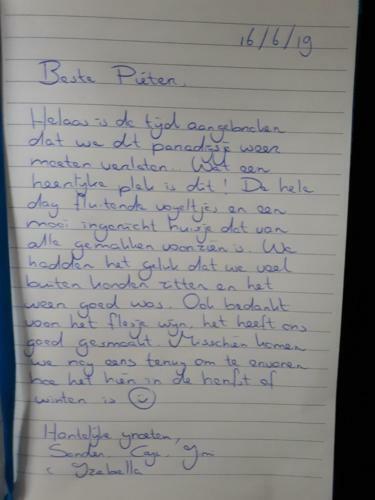 16/6/19
Beste Piéter,
Helaas is de tijd aangebroken
dat we dit paradijsje weer
moeten verlaten. Wat een
heerlijke plek is dit! De hele
dag fluitende vogeltjes en een
mooi ingericht huisje dat van
alle gemakken voorzien is. We
hadden het geluk dat we veel
buiten konden zitten en het
weer goed was. Ook bedankt
voor het flesje wijn, het heeft ons
goed gesmaakt. Misschien komen
we nog eens terug om te ervaren
hoe het hier in de herfst of
winter is ☺
Hartelijke groeten,
Sander,
Yzabella